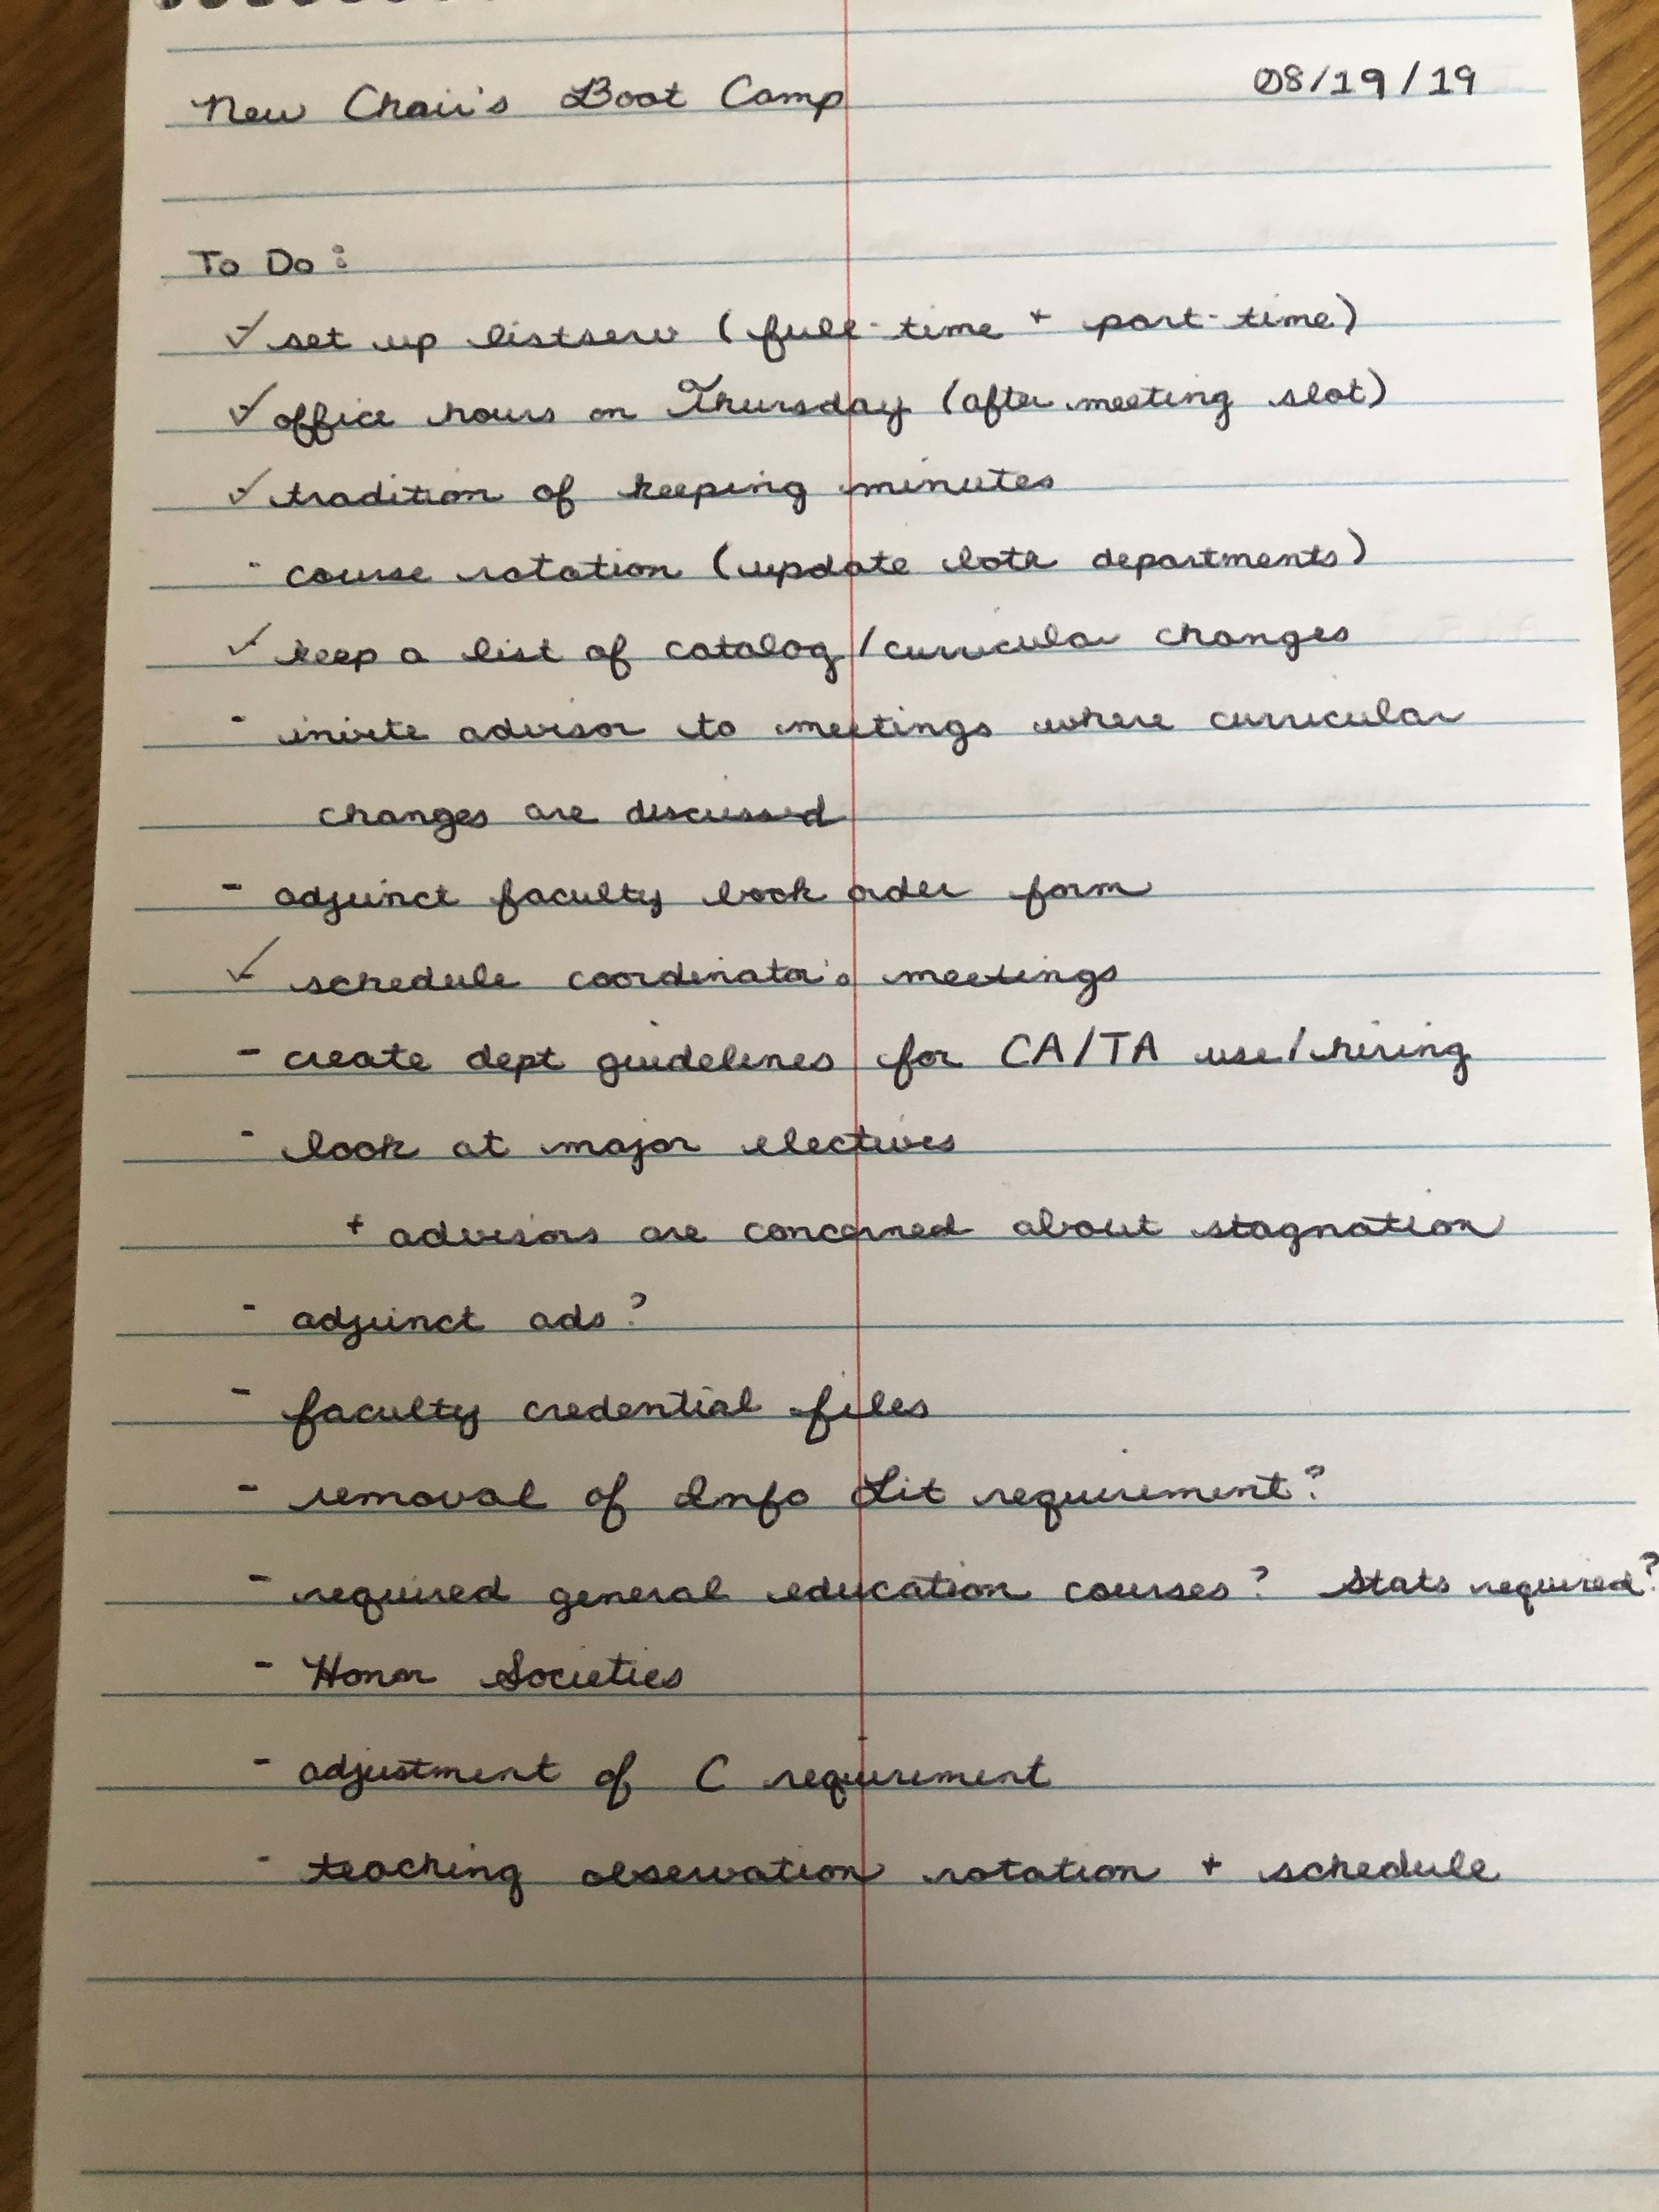 New Chair's Boot Camp 08/19/19
To Do:
✓ set up listserv (full-time + part-time)
✓ office hours on Thursday (after meeting slot)
✓ tradition of keeping minutes
- course rotation (update both departments)
✓ keep a list of catalog/curricular changes
- invite advisor to meetings where curricular
changes are discussed
- adjunct faculty book order form
✓ schedule coordinator's meetings
- create dept guidelines for CA/TA use/hiring
- look at major electives
+ advisors are concerned about stagnation
- adjunct ads?
- faculty credential files
- removal of Info Lit requirement?
- required general education courses? Stats required?
- Honor Societies
- adjustment of C requirement
- teaching observation rotation + schedule